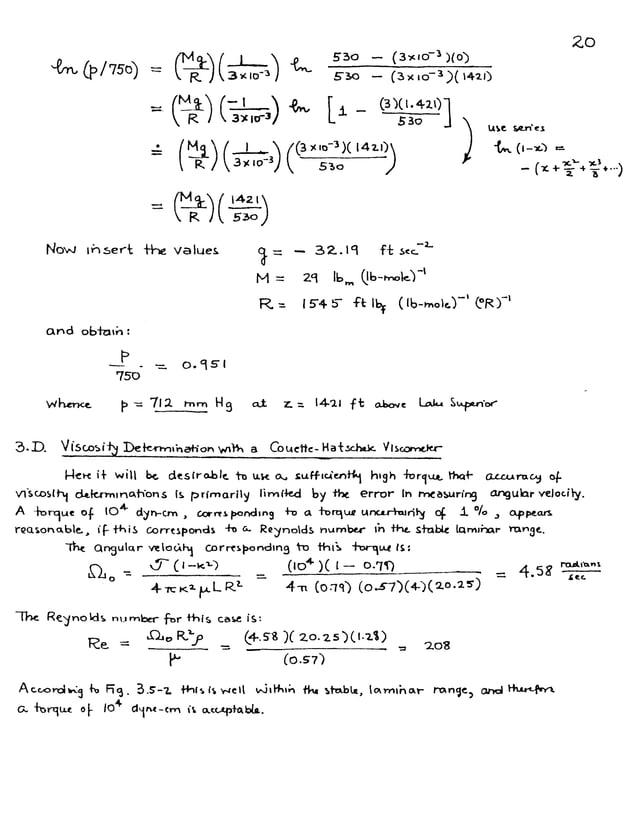 20
ln (p/750) = (Mg/R) (1/3×10⁻³) ln (530 − (3×10⁻³)(0))/(530 − (3×10⁻³)(1421))
= (Mg/R) (−1/3×10⁻³) ln [1 − (3)(1.421)/530]
use series
≐ (Mg/R) (1/3×10⁻³) ((3×10⁻³)(1421)/530)
ln (1−x) =
− (x + x²/2 + x³/3 + ···)
= (Mg/R) (1421/530)
Now insert the values g = − 32.19 ft sec⁻²
M = 29 lbₘ (lb-mole)⁻¹
R = 1545 ft lb_f (lb-mole)⁻¹ (°R)⁻¹
and obtain:
p/750 = 0.951
whence p = 712 mm Hg at z = 1421 ft above Lake Superior
3.D. Viscosity Determination with a Couette-Hatschek Viscometer
Here it will be desirable to use a sufficiently high torque that accuracy of
viscosity determinations is primarily limited by the error in measuring angular velocity.
A torque of 10⁴ dyn-cm, corresponding to a torque uncertainity of 1 %, appears
reasonable, if this corresponds to a Reynolds number in the stable laminar range.
The angular velocity corresponding to this torque is:
Ω₀ = 𝒯(1−κ²)/(4πκ²μLR²) = (10⁴)(1 − 0.79)/(4π (0.79) (0.57)(4)(20.25)) = 4.58 radians/sec
The Reynolds number for this case is:
Re = Ω₀R²ρ/μ = (4.58)(20.25)(1.28)/(0.57) = 208
According to Fig. 3.5-2 this is well within the stable, laminar range, and therefore
a torque of 10⁴ dyne-cm is acceptable.